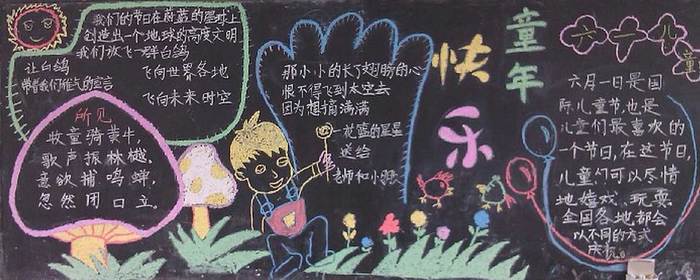 我们的节日在蔚蓝的星球上
创造出一个地球的高度文明
我们放飞一群白鸽
让白鸽 飞向世界各地
带着我们稚气的宣言
飞向未来时空
所见
牧童骑黄牛，
歌声振林樾，
意欲捕鸣蝉，
忽然闭口立。
那小小的长了翅膀的心
恨不得飞到太空去
因为想摘满满
一篮的星星
送给
老师和小朋友
快乐
童年
六一儿童
六月一日是国
际儿童节也是
儿童们最喜欢的
一个节日，在这节日，
儿童们可以尽情
地嬉戏、玩耍
全国各地都会
以不同的方式
庆祝。